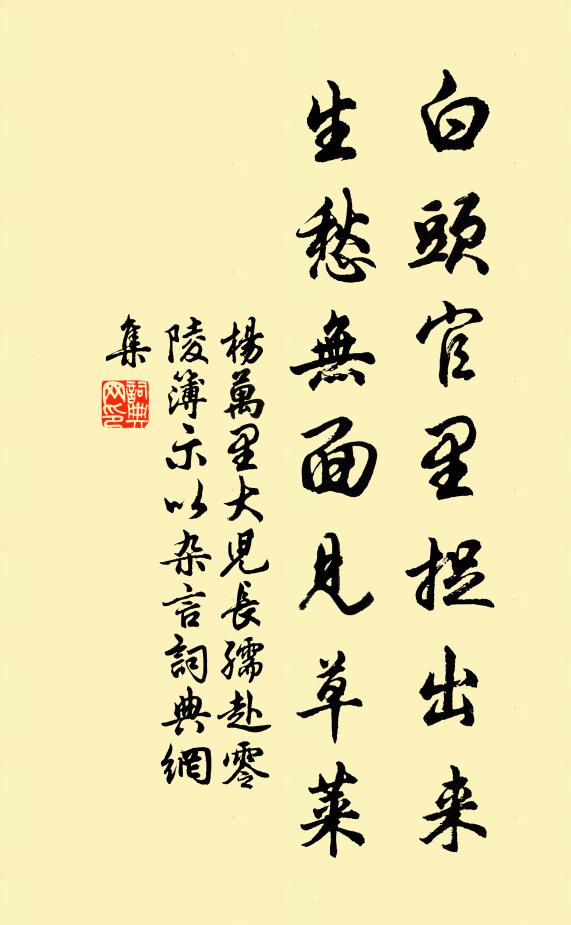 白頭官里捉出来
生愁無面見草萊
楊萬里大児長孺赴零
陵簿示以杂言詞典網
集
詞典
网印